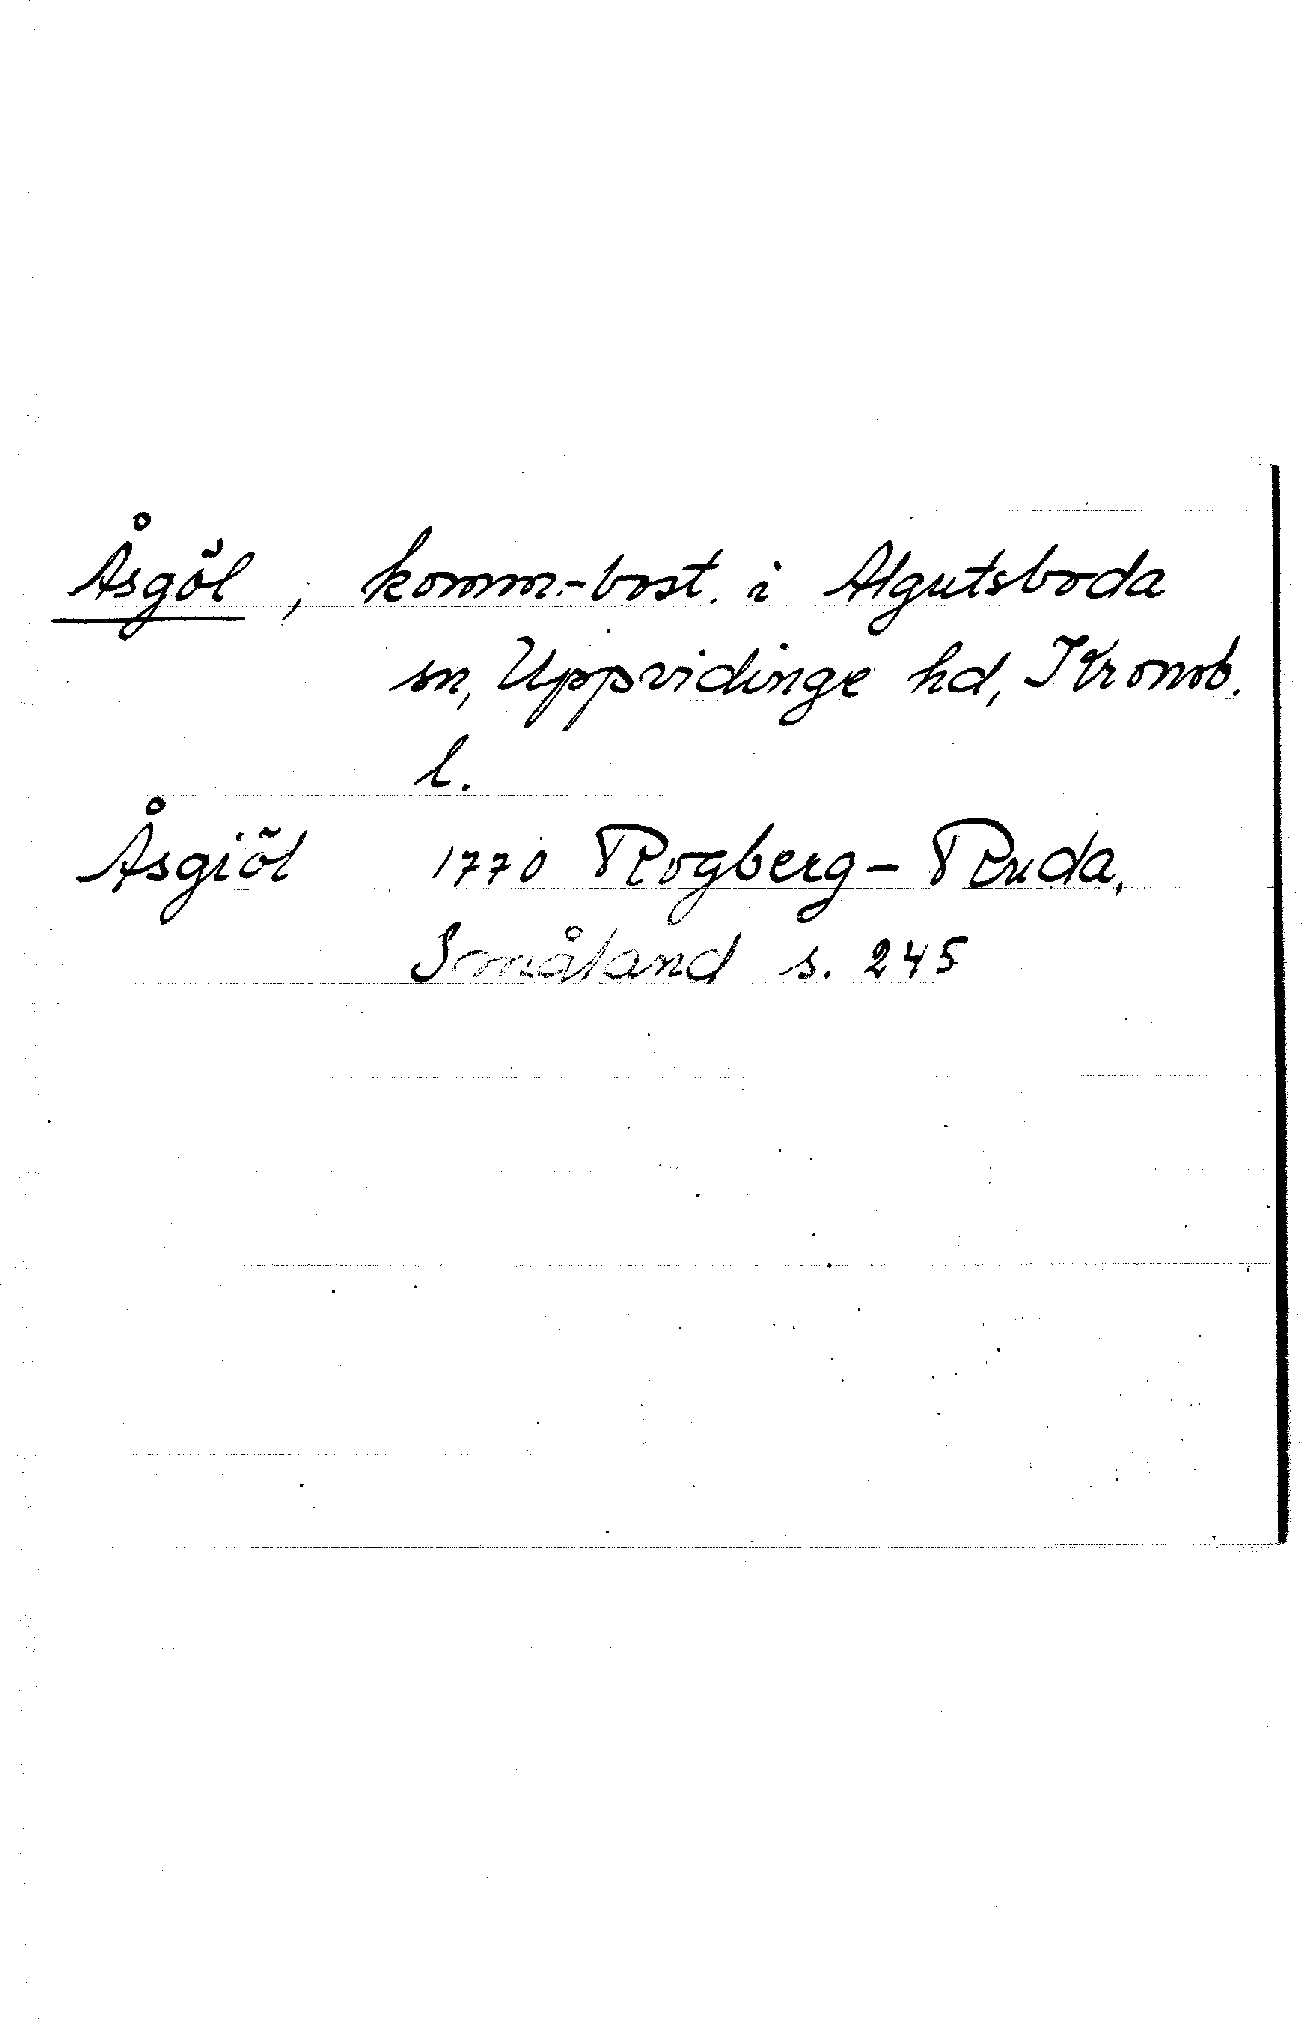 Åsgöl, komm.-bost. i Algutsboda
sn, Uppvidinge hd, Kronob.
l.
Åsgiöl 1770 Rogberg-Ruda,
Småland s. 245